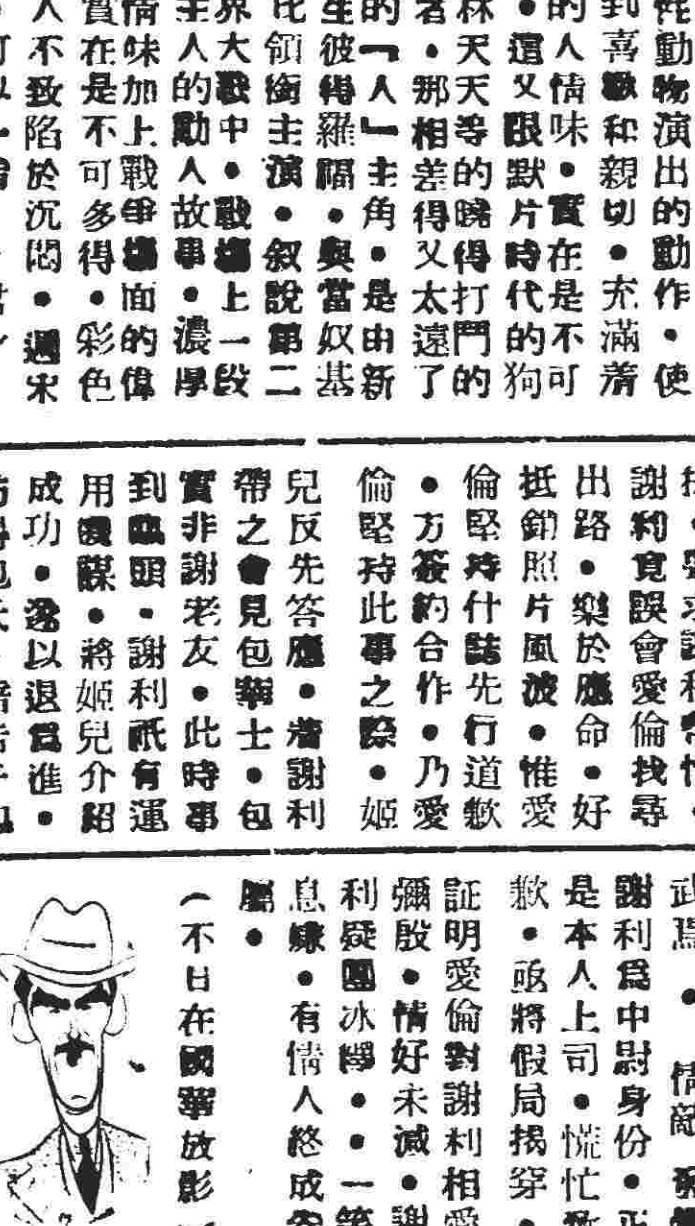 侘動物演出的動作・使
到喜歡和親切・充滿着
的人情味・實在是不可
・這又跟默片時代的狗
林天天等的曉得打鬥的
者・那相差得又太遠了
的「人」主角・是由新
生彼得羅福・與當奴基
比領銜主演・叙說第二
界大戰中・戰場上一段
主人的動人故事・濃厚
情味加上戰爭場面的偉
實在是不可多得・彩色
人不致陷於沉悶・週末
謝利竟誤會愛倫找尋
出路・樂於應命・好
抵銷照片風波・惟愛
倫堅持什誌先行道歉
・方簽約合作・乃愛
倫堅持此事之際・姬
兒反先答應・着謝利
帶之會見包華士・包
實非謝老友・此時事
到臨頭・謝利祇有運
用機謀・將姬兒介紹
成功・遂以退爲進・
武焉・情敵
謝利爲中尉身份・
是本人上司・慌忙
歉・亟將假局揭穿・
証明愛倫對謝利相愛
彌殷・情好未減・謝
利疑團冰釋・・一
息嫌・有情人終成
屬・
(不日在國華放影